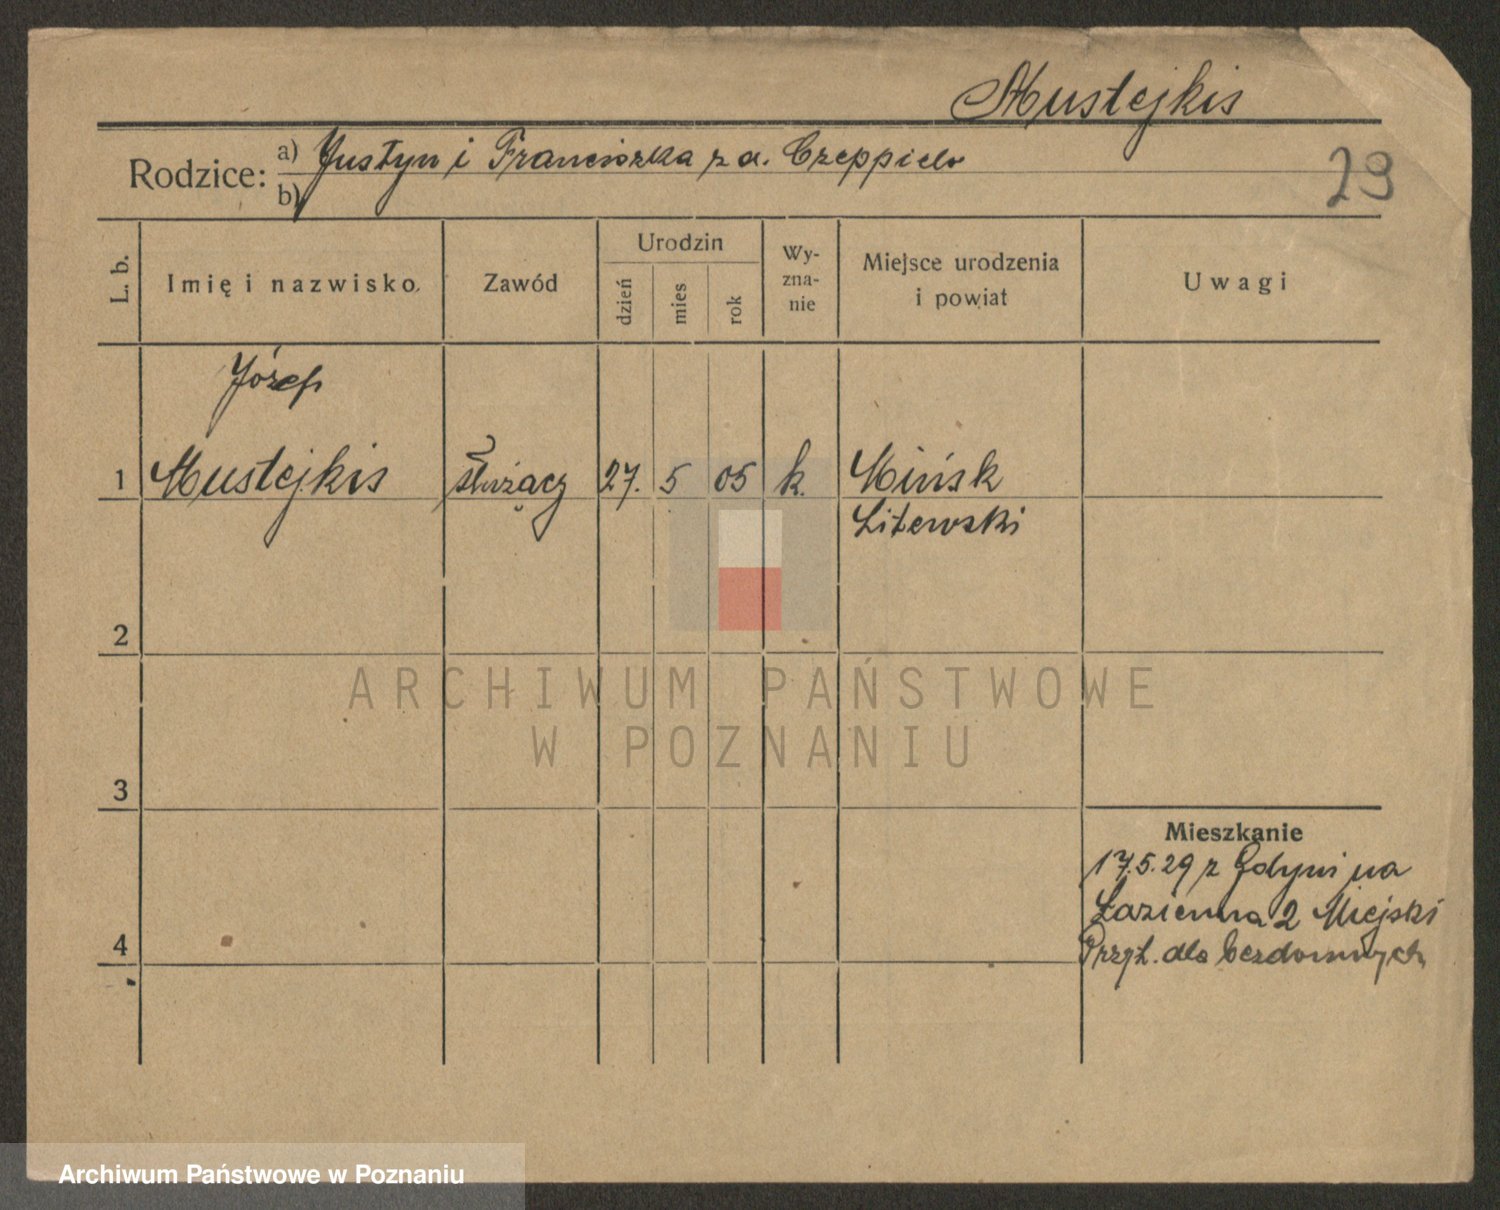 Mustejkis
Rodzice: a) Justyn i Franciszka z d. Czeppielo
b)
29
L. b.
Imię i nazwisko
Zawód
Urodzin
dzień
mies
rok
Wy-
zna-
nie
Miejsce urodzenia
i powiat
Uwagi
Józef
1 Mustejkis służący 27. 5 05 k. Mińsk
Litewski
2
3
4
Mieszkanie
17.5.29 z Gdyni na
Łazienna 2 Miejski
Przyt. dla bezdomnych
ARCHIWUM PAŃSTWOWE
W POZNANIU
Archiwum Państwowe w Poznaniu